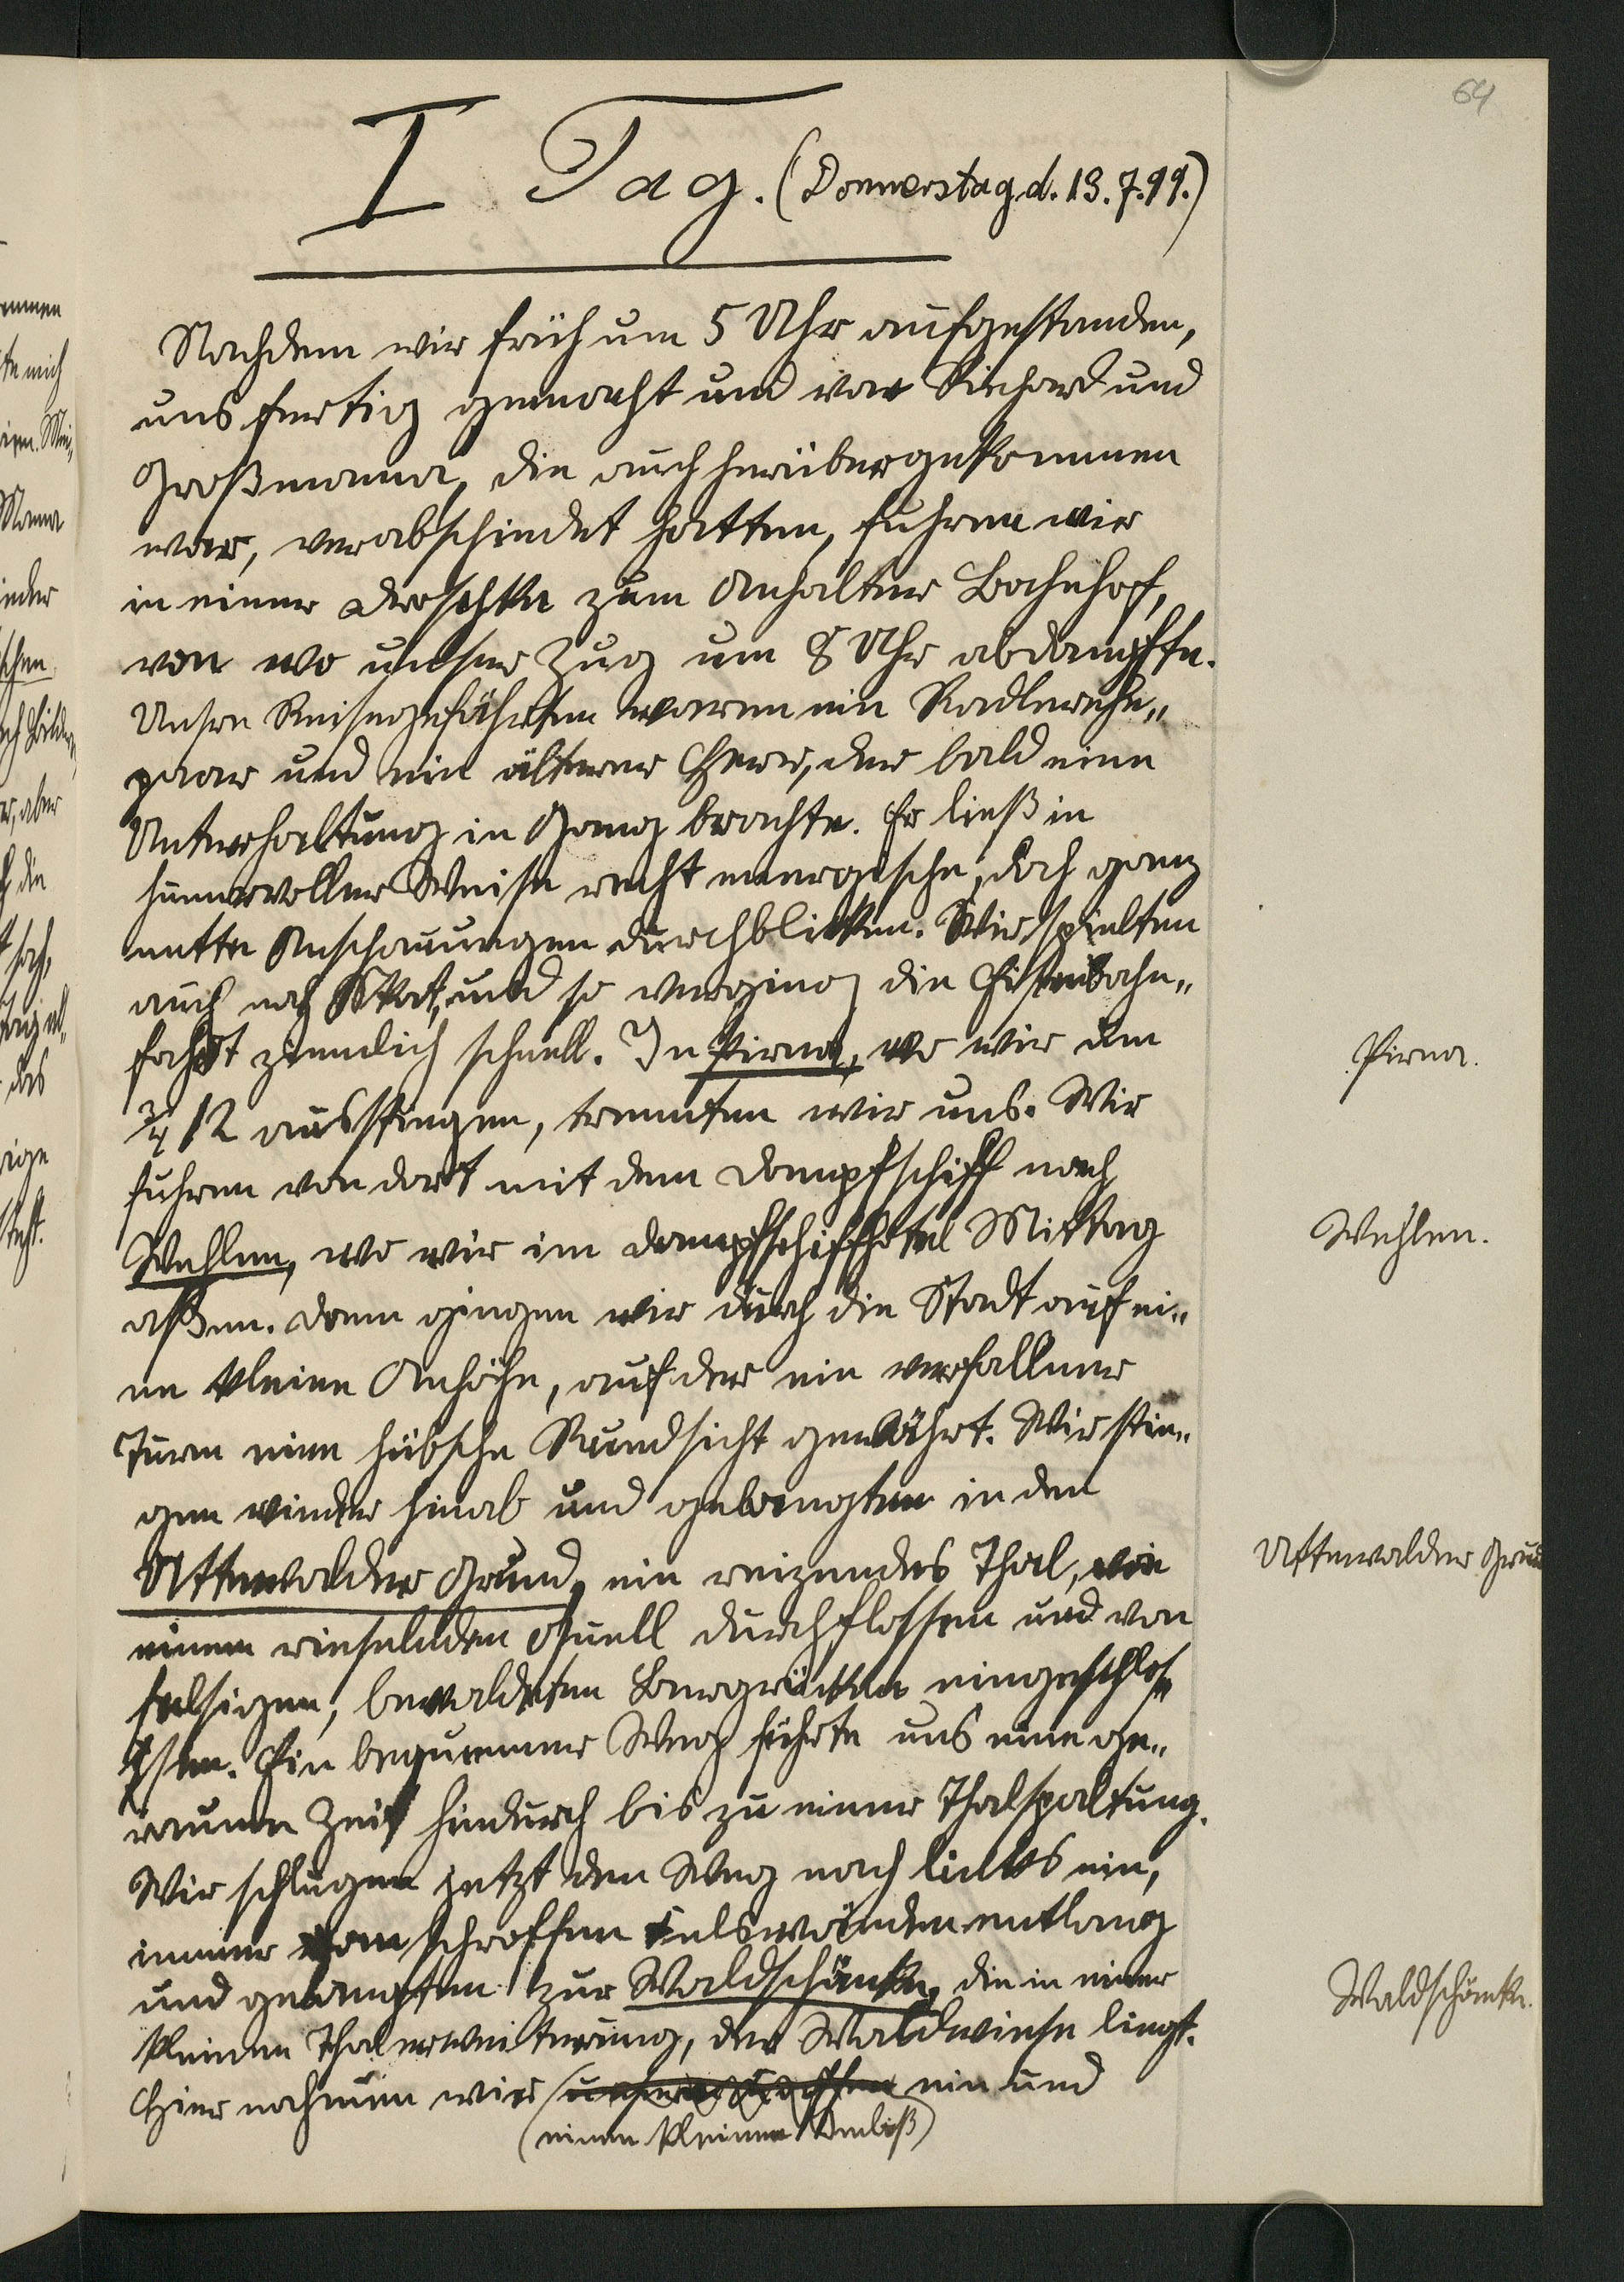 64
I Tag. (Donnerstag d. 13.7.99.)
Nachdem wir früh um 5 Uhr aufgestanden,
uns fertig gemacht und von Richard und
Großmama, die auch herübergekommen
war, verabschiedet hatten, fuhren wir
in einer Droschke zum Anhalter Bahnhof,
von wo unser Zug um 8 Uhr abdampfte.
Unsre Reisegefährten waren ein Radlerehe„
paar und ein älterer Herr, der bald eine
Unterhaltung in Gang brachte. Er ließ in
humorvoller Weise recht energische, doch ganz
nette Anschauungen durchblicken. Wir spielten
auch noch Skat, und so verging die Eisenbahn„
fahrt ziemlich schnell. In Pirna, wo wir um
3/4 12 ausstiegen, trennten wir uns. Wir
fuhren von dort mit dem Dampfschiff nach
Wehlen, wo wir im Dampfschiffhotel Mittag
aßen. Dann gingen wir durch die Stadt auf ei„
ne kleine Anhöhe, auf der ein verfallner
Turm eine hübsche Rundsicht gewährt. Wir stie„
gen wieder hinab und gelangten in den
Uttewalder Grund, ein reizendes Thal, von
einem rieselnden Quell durchflossen und von
felsigen, bewaldeten Bergrücken eingeschlos„
sen. Ein bequemer Weg führte uns eine ge„
raume Zeit hindurch bis zu einer Thalspaltung.
Wir schlugen jetzt den Weg nach links ein,
immer an schroffen Felswänden entlang
und gelangten zur Waldschänke, die in einer
kleinen Thalerweiterung, der Waldwiese liegt.
Hier nahmen wir unseren Kaffee ein und
(einen kleinen Imbiß)
Pirna.
Wehlen.
Uttewalder Grund
Waldschänke.